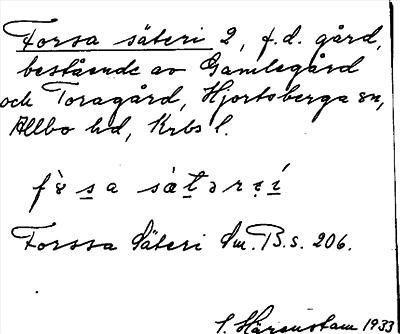 Forsa säteri 2, f.d. gård,
bestående av Gamlegård
och Toragård, Hjortsberga sn,
Allbo hd, Krbs l.
Forssa Säteri Sm. B. s. 206.
S. Härenstam 1933